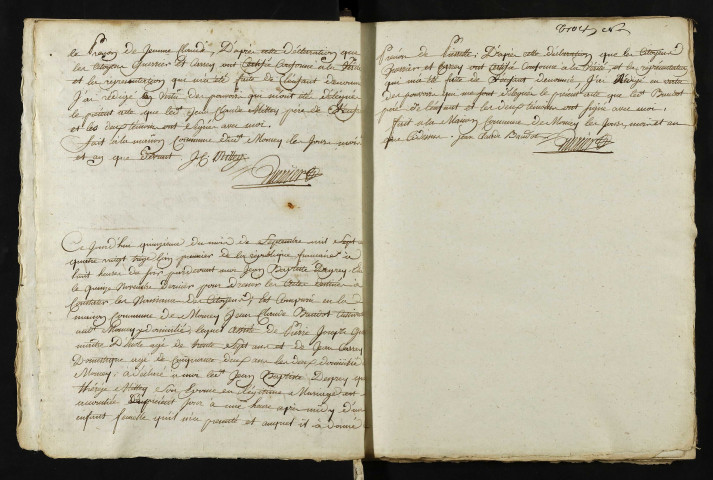 le Prenom de Jeanne Claude, D'après cette déclaration que
les citoyens Guerrier et Carrey ont certifié conforme à la
et la représentation qui m'a été faite de l'enfant dénommé
J'ai rédigé en vertu des pouvoirs qui m'ont été délégué
le present acte que led. Jean Claude Mettey père de
et les deux temoin ont signé avec moi.
fait a la maison Commune de Moncey les Jour mois
et an que devant J C Mettey
Ce Jourd'hui quinzieme du mois de Septembre mil Sept
quatre vingt treize l'an premier de la république francaise à
huit heures du soir pardevant moi Jean Baptiste Deprey
le quinze Novembre Dernier pour dresser les Actes
Constater les Naissances des Citoyens est Comparu en la
maison Commune de Moncey Jean Claude Baudot
audit Moncey y domicilié, lequel assisté de Pierre Joseph
maitre D'hotel agé de trente Sept ans et de Jean Carrey
Domestique agé de Cinquante deux ans les deux domiciliés
Moncey: a déclaré a moi led. Jean Baptiste Deprey que
Thérèse Mettey Son Epouse en légitime Mariage est
accouchée Jour à une heure après midy d'un
enfant femelle qu'il m'a presenté et auquel il à donné
Prénom de D'après cette déclaration que les Citoyens
Guerrier et Carrey ont certifié conforme a la vérité, et la représentation
qui m'a été faite de l'enfant denommé J'ai rédigé en vertu
des pouvoir qui me sont délégués le présent acte que led. Baudot
père de l'enfant et les deux temoin ont signé avec moi.
fait a la Maison Commune de Moncey les Jour, mois et an
que Cydessus. Jean Claude Baudot